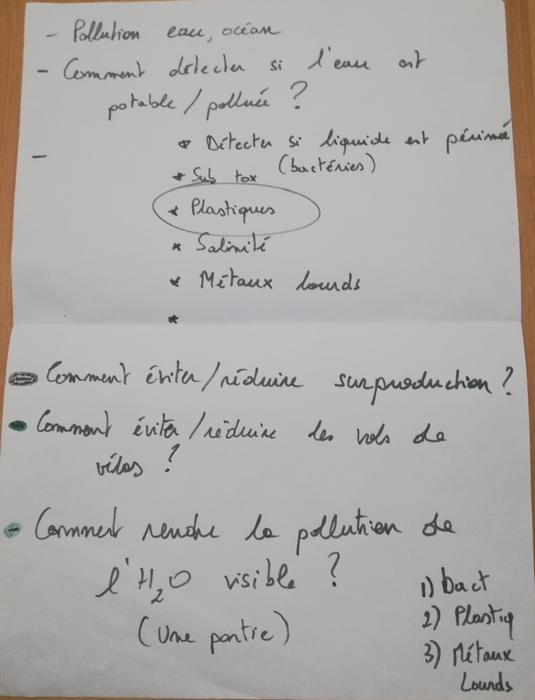 - Pollution eau, océan
- Comment détecter si l'eau est
potable/polluée ?
* Détecter si liquide est périmé
(bactéries)
-
* Sub tox
* Plastiques
* Salinité
* Métaux lourds
*
- Comment éviter/réduire surproduction ?
- Comment éviter/réduire les vols de
vélos ?
- Comment rendre la pollution de
l'H2O visible ?
(Une partie)
1) bact
2) Plastiq
3) Métaux
Lourds